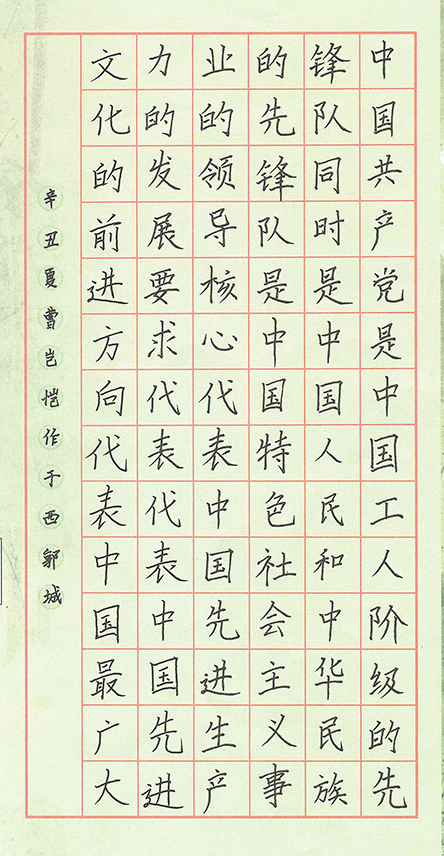 中国共产党是中国工人阶级的先
锋队同时是中国人民和中华民族
的先锋队是中国特色社会主义事
业的领导核心代表中国先进生产
力的发展要求代表代表中国先进
文化的前进方向代表中国最广大
辛丑夏曹岂恺作于西郭城